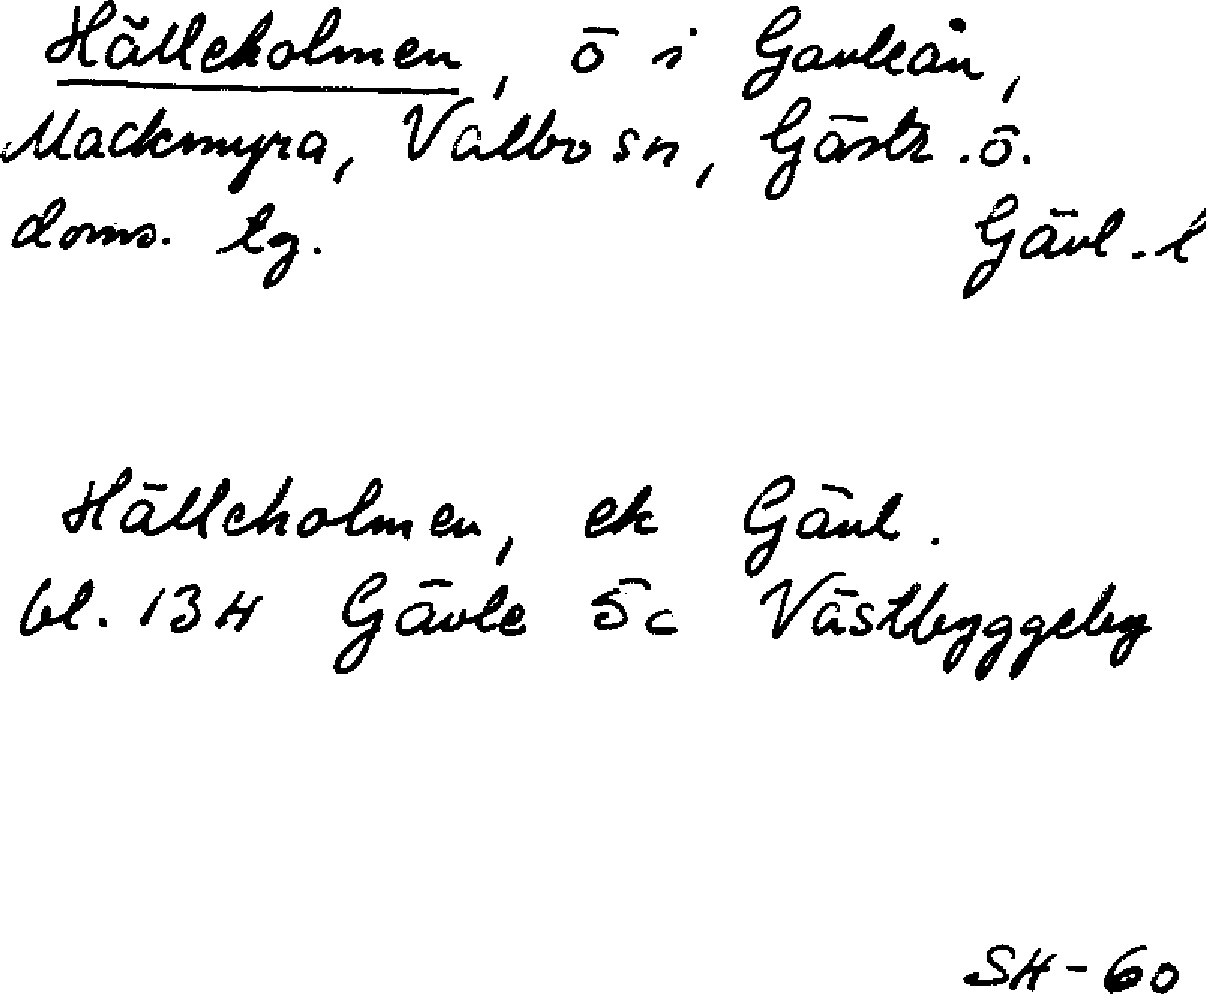 Hälleholmen, ö i Gavleån,
Mackmyra, Valbo sn, Gästr. ö.
doms. lg. Gävl. l
Hälleholmen, ek Gävl.
bl. 13H Gävle 5c Västbyggeby
SH-60